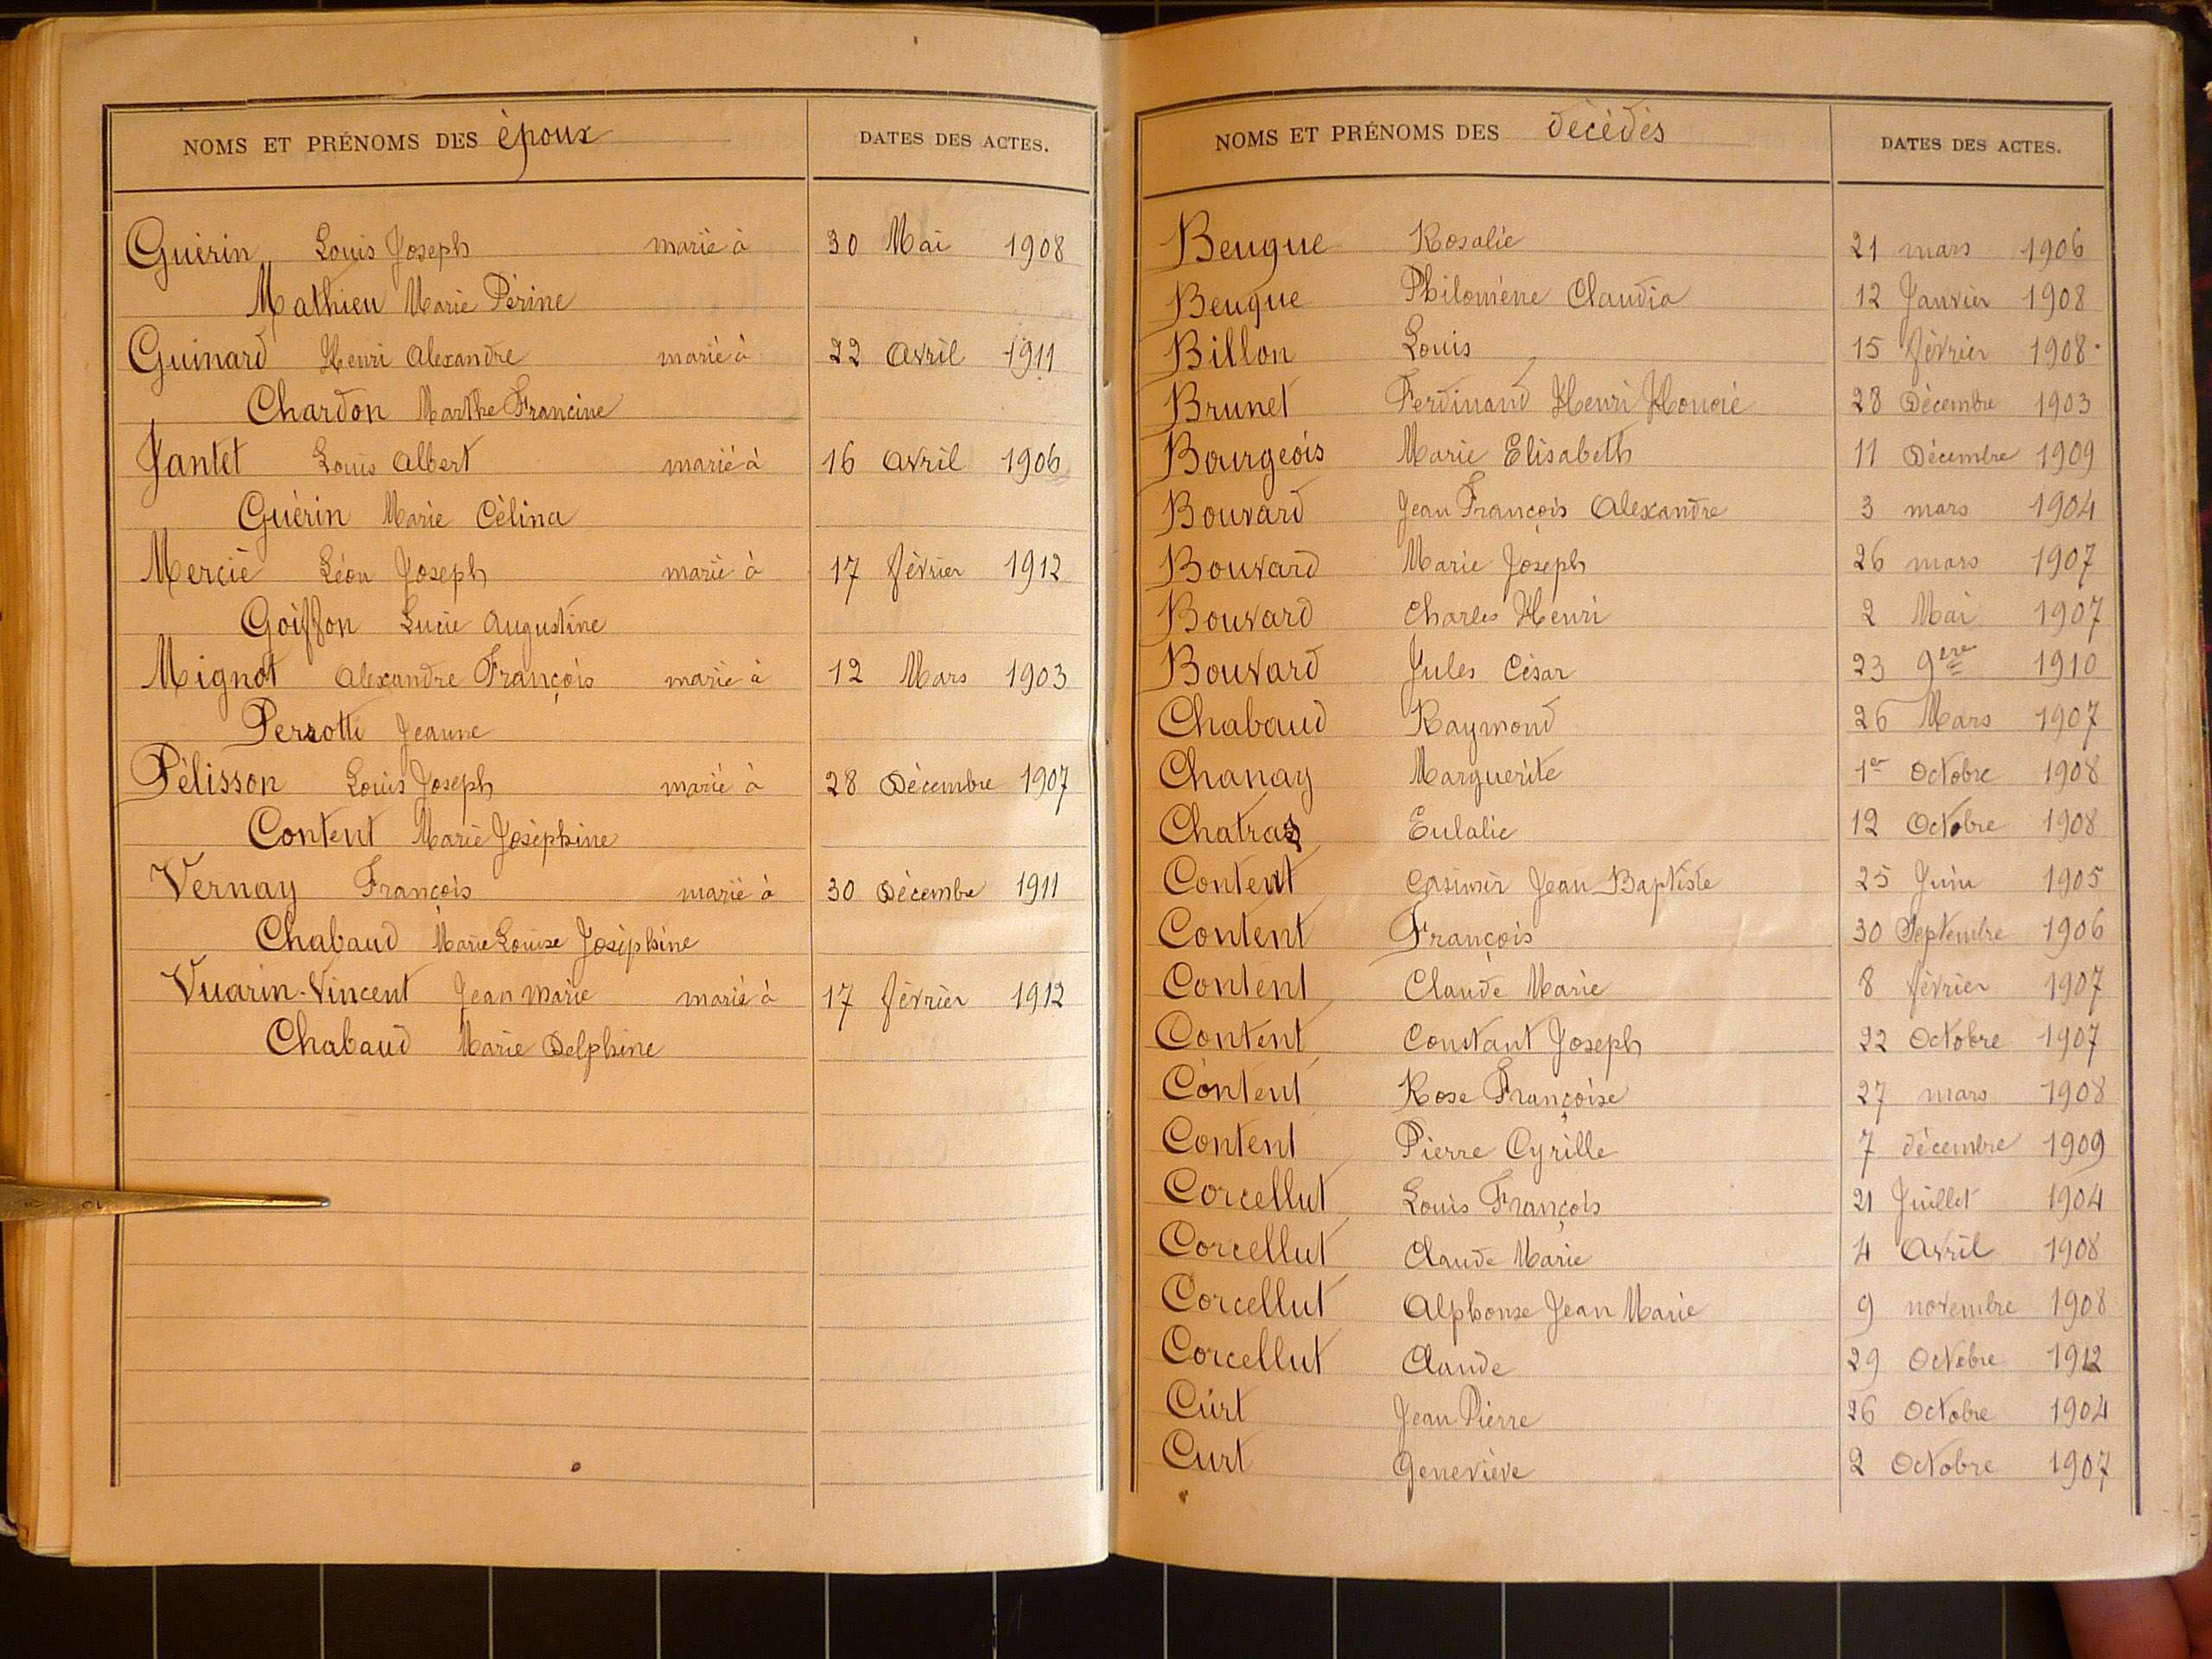 NOMS ET PRÉNOMS DES époux DATES DES ACTES.
Guérin Louis Joseph marié à 30 Mai 1908
Mathieu Marie Périne
Guinard Henri Alexandre marié à 22 Avril 1911
Chardon Marthe Francine
Jantet Louis Albert marié à 16 Avril 1906
Guérin Marie Célina
Mercié Léon Joseph marié à 17 février 1912
Goiffon Lucie Augustine
Mignot Alexandre François marié à 12 Mars 1903
Perrotti Jeanne
Pélisson Louis Joseph marié à 28 Décembre 1907
Content Marie Joséphine
Vernay François marié à 30 Décembre 1911
Chabaud Marie Louise Joséphine
Vuarin-Vincent Jean Marie marié à 17 février 1912
Chabaud Marie Delphine
NOMS ET PRÉNOMS DES décédés DATES DES ACTES.
Beugue Rosalie 21 mars 1906
Beugue Philomène Claudia 12 Janvier 1908
Billon Louis 15 février 1908
Brunet Ferdinand Henri Honoré 28 Décembre 1903
Bourgeois Marie Elisabeth 11 Décembre 1909
Bouvard Jean François Alexandre 3 mars 1904
Bouvard Marie Joseph 26 mars 1907
Bouvard Charles Henri 2 Mai 1907
Bouvard Jules César 23 9bre 1910
Chabaud Raymond 26 Mars 1907
Chanay Marguerite 1er Octobre 1908
Chatraz Eulalie 12 Octobre 1908
Content Casimir Jean-Baptiste 25 Juin 1905
Content François 30 Septembre 1906
Content Claude Marie 8 février 1907
Content Constant Joseph 22 Octobre 1907
Content Rose Françoise 27 mars 1908
Content Pierre Cyrille 7 décembre 1909
Corcellut Louis François 21 Juillet 1904
Corcellut Claude Marie 4 Avril 1908
Corcellut Alphonse Jean Marie 9 novembre 1908
Corcellut Claude 29 Octobre 1912
Curt Jean Pierre 26 Octobre 1904
Curt Geneviève 2 Octobre 1907